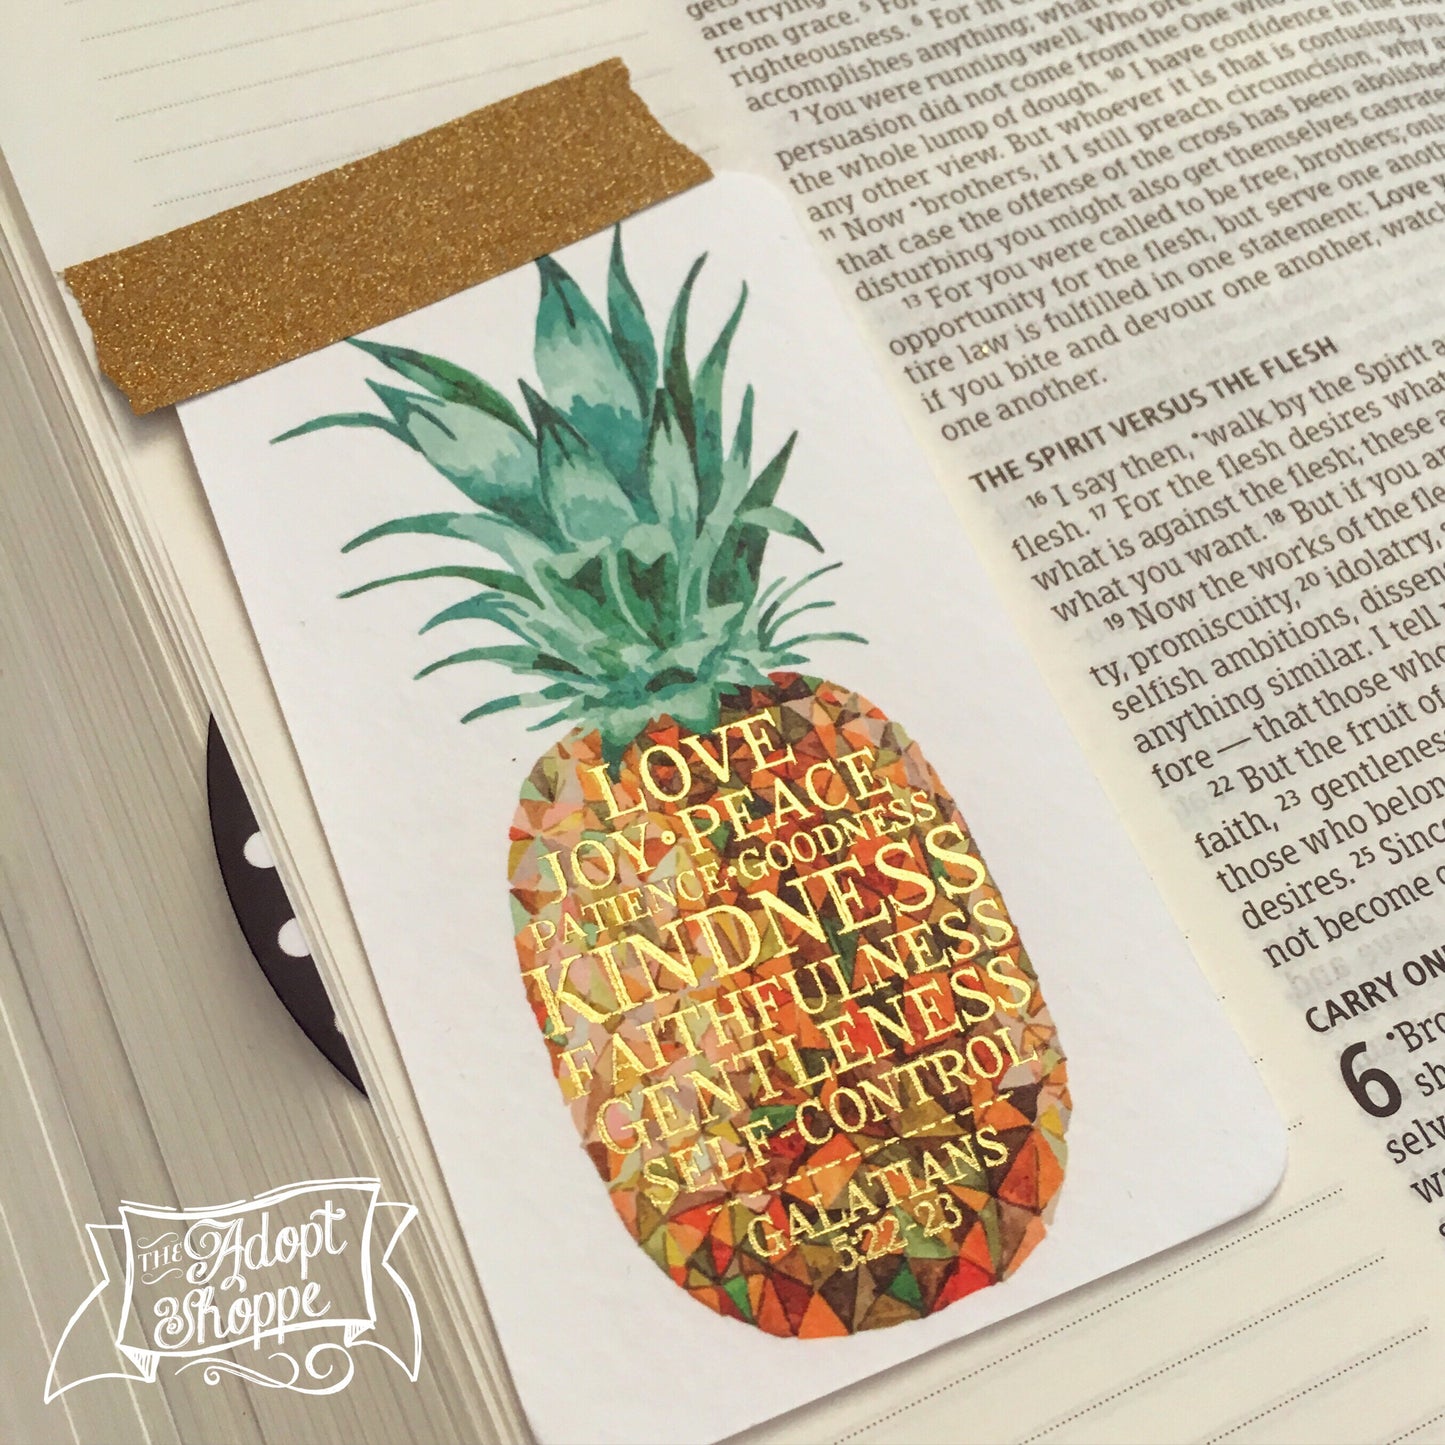 are trying
from grace. ⁵ For
righteousness. ⁶ For in
accomplishes anything; what
⁷ You were running well. Who pre
persuasion did not come from the One who
the whole lump of dough. ¹⁰ I have confidence in the
any other view. But whoever it is that is confusing you
¹¹ Now *brothers, if I still preach circumcision, why a
that case the offense of the cross has been abolished
disturbing you might also get themselves castrate
¹³ For you were called to be free, brothers; only
opportunity for the flesh, but serve one anoth
tire law is fulfilled in one statement: Love y
if you bite and devour one another, watch
one another.
THE SPIRIT VERSUS THE FLESH
¹⁶ I say then, *walk by the Spirit a
flesh. ¹⁷ For the flesh desires what
what is against the flesh; these a
what you want. ¹⁸ But if you ar
¹⁹ Now the works of the fle
ty, promiscuity, ²⁰ idolatry,
selfish ambitions, dissen
anything similar. I tell
fore — that those who
²² But the fruit of
faith, ²³ gentlenes
those who belon
desires. ²⁵ Sinc
not become c
CARRY ON
6 *Bro
sh
selv
w
LOVE
JOY • PEACE
PATIENCE • GOODNESS
KINDNESS
FAITHFULNESS
GENTLENESS
SELF-CONTROL
GALATIANS
5:22-23
THE Adopt
Shoppe